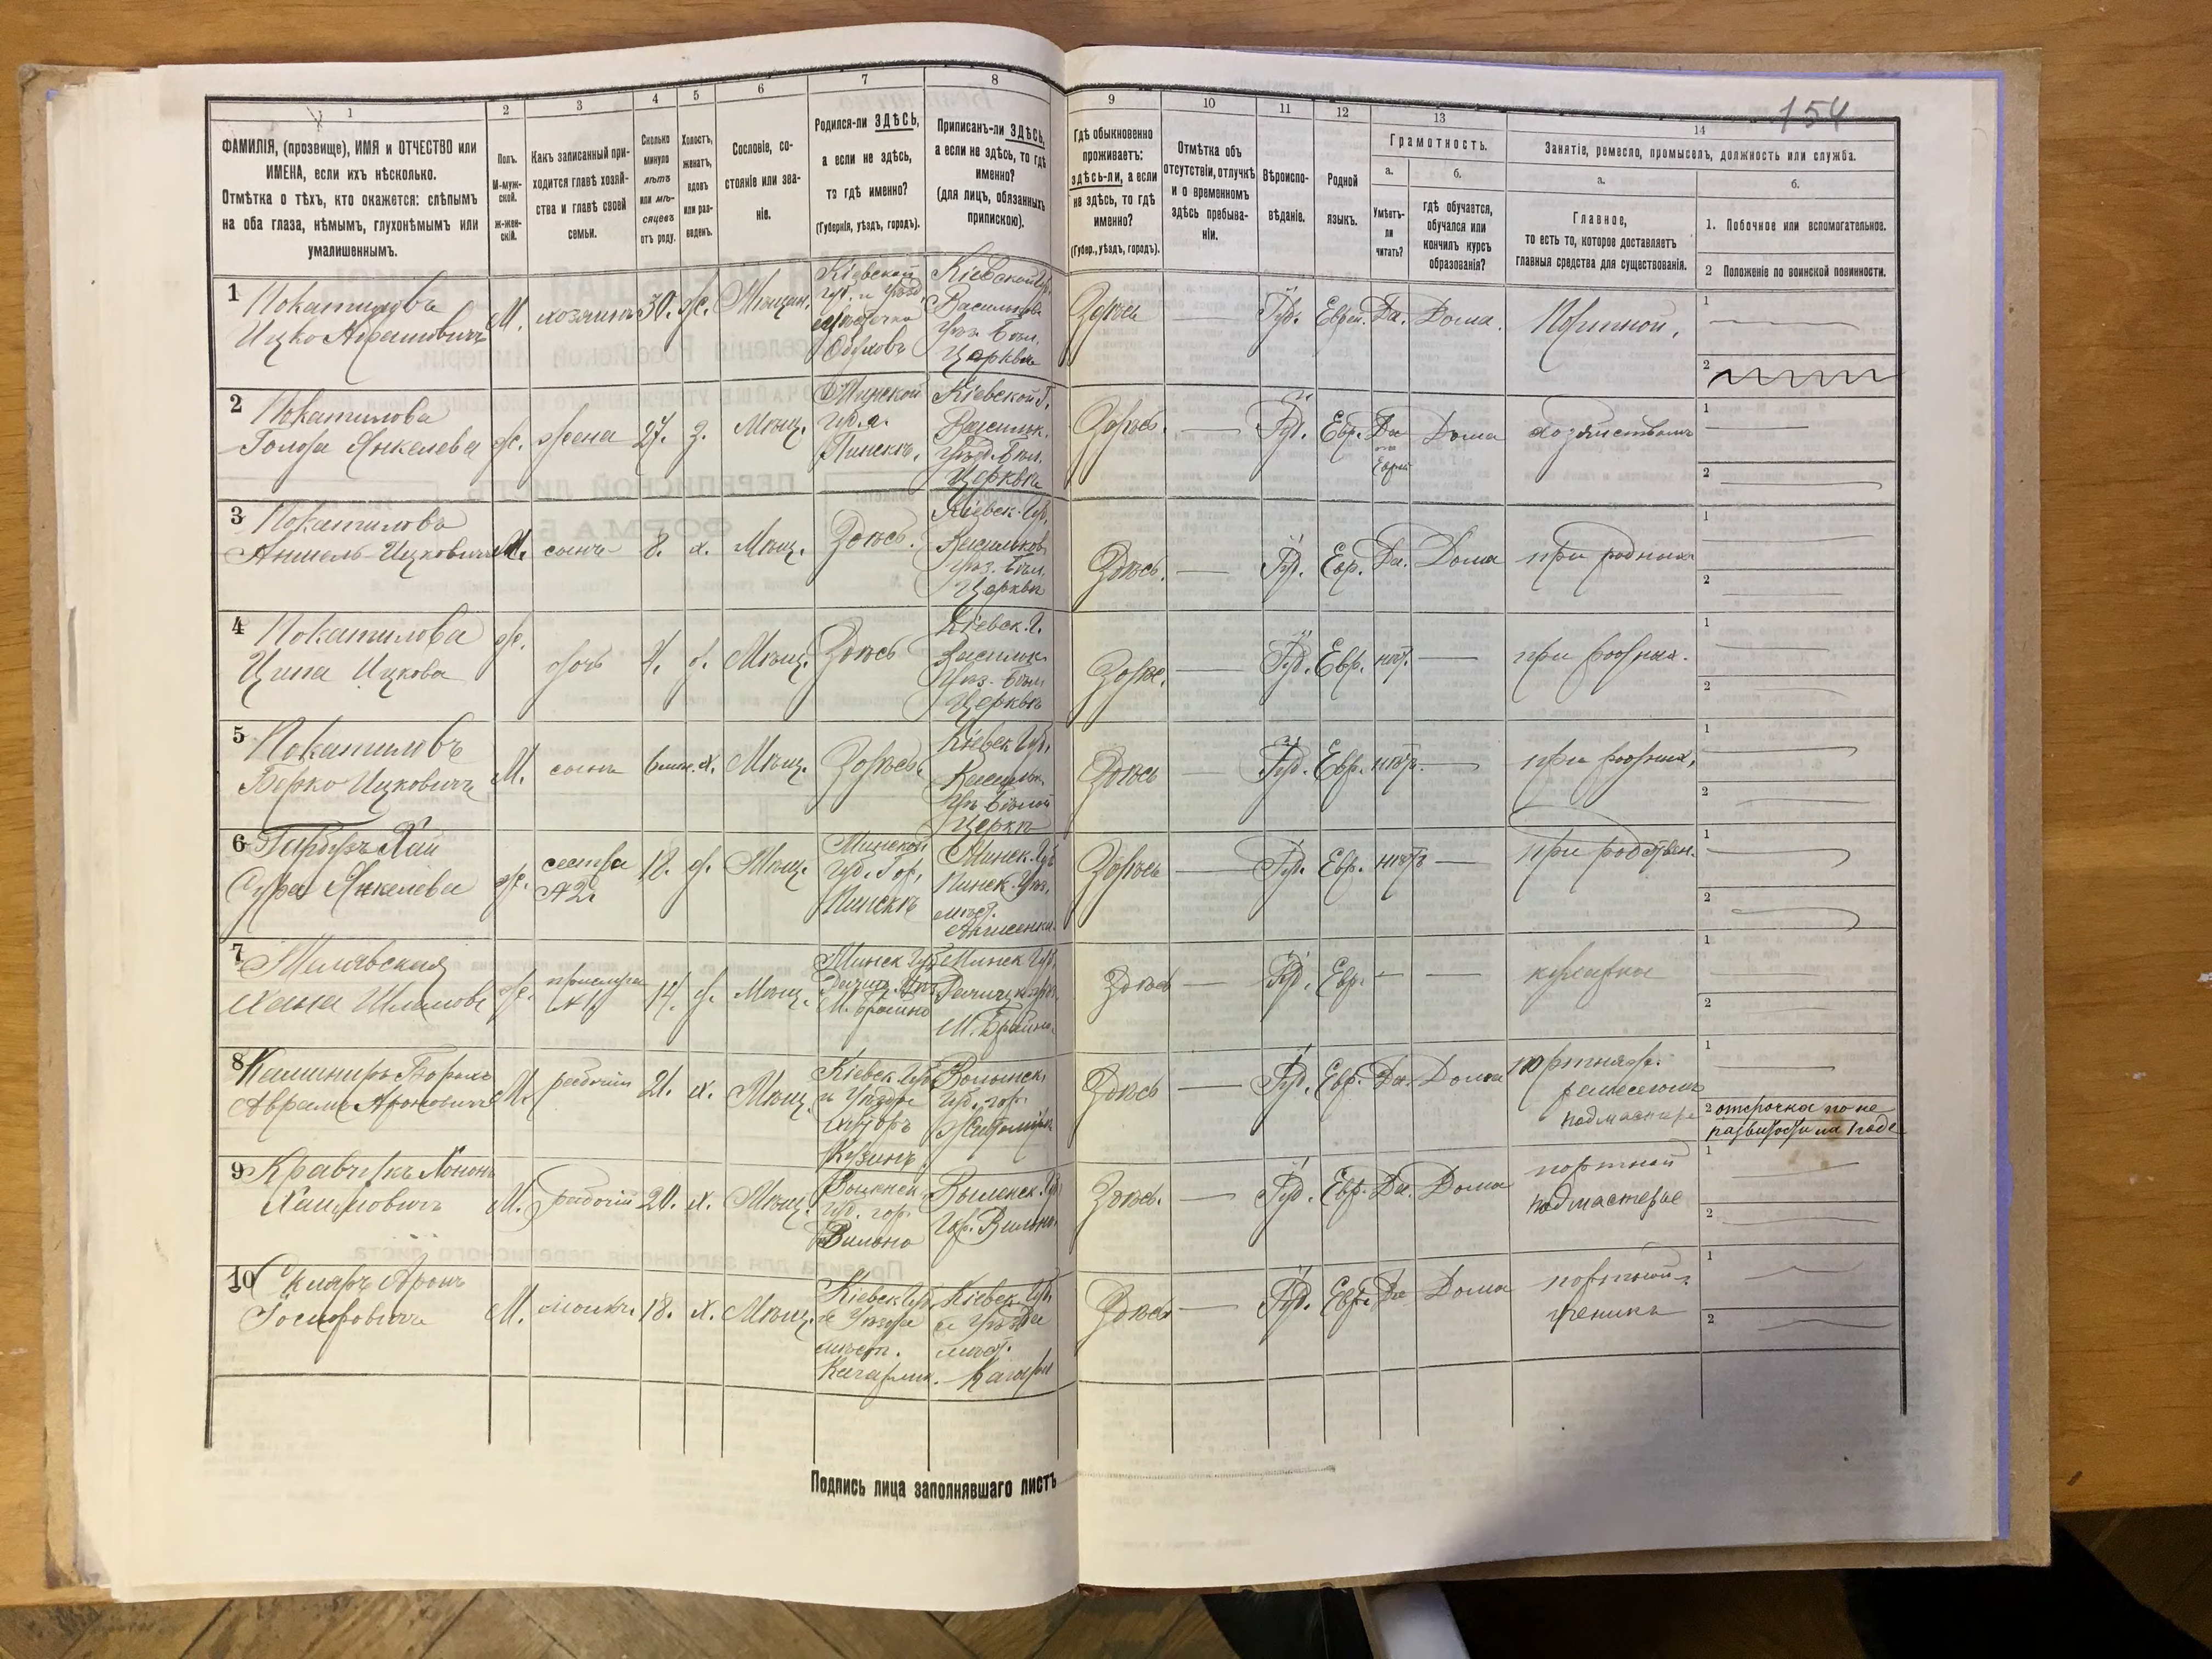 154
1
2
3
4
5
6
7
8
9
10
11
12
13
14
ФАМИЛІЯ, (прозвище), ИМЯ и ОТЧЕСТВО или
ИМЕНА, если ихъ нѣсколько.
Отмѣтка о тѣхъ, кто окажется: слѣпымъ
на оба глаза, нѣмымъ, глухонѣмымъ или
умалишеннымъ.
Полъ.
М-муж-
ской.
ж-жен-
скій.
Какъ записанный при-
ходится главѣ хозяй-
ства и главѣ своей
семьи.
Сколько
минуло
лѣтъ
или мѣ-
сяцевъ
отъ роду.
Холостъ,
женатъ,
вдовъ
или раз-
веденъ.
Сословіе, со-
стояніе или зва-
ніе.
Родился-ли ЗДѢСЬ,
а если не здѣсь,
то гдѣ именно?
(Губернія, уѣздъ, городъ).
Приписанъ-ли ЗДѢСЬ,
а если не здѣсь, то гдѣ
именно?
(для лицъ, обязанныхъ
припискою).
Гдѣ обыкновенно
проживаетъ:
здѣсь-ли, а если
не здѣсь, то гдѣ
именно?
(Губер., уѣздъ, городъ).
Отмѣтка объ
отсутствіи, отлучкѣ
и о временномъ
здѣсь пребыва-
ніи.
Вѣроиспо-
вѣданіе.
Родной
языкъ.
Грамотность.
а.
Умѣетъ-
ли
читать?
б.
гдѣ обучается,
обучался или
кончилъ курсъ
образованія?
Занятіе, ремесло, промыселъ, должность или служба.
а.
Главное,
то есть то, которое доставляетъ
главныя средства для существованія.
б.
1. Побочное или вспомогательное.
2 Положеніе по воинской повинности.
1 Покатиловъ
Ицко Абрамовичъ
М. хозяинъ 30. ж. Мѣщан.
Кіевской
губ. и уѣзд.
мѣстечко
Обуховъ
Кіевской губ.
Васильков.
уѣз. Бѣл.
Церкви
Здѣсь — Іуд. Еврей. Да. Дома. Портной,
1
2
2 Покатилова
Голда Янкелева
ж. жена 27. з. Мѣщ.
Минской
губ. г.
Пинскъ.
Кіевской г.
Васильк.
уѣзд. Бѣл.
Церкви
Здѣсь. — Іуд. Евр. Да Дома хозяйствомъ
1
2
3 Покатиловъ
Аншель Ицковичъ
М. сынъ 8. х. Мѣщ. Здѣсь.
Кіевск. Губ.
Васильков.
уѣз. Бѣл.
Церкви
Здѣсь. — Іуд. Евр. Да. Дома при родныхъ
1
2
4 Покатилова
Ципа Ицкова
ж. дочь 4. д. Мѣщ. Здѣсь
Кіевск. г.
Васильк.
уѣз. Бѣл.
Церкви
Здѣсь. — Іуд. Евр. нѣт. — при родных.
1
2
5 Покатиловъ
Берко Ицковичъ
М. сынъ 6 мѣс. х. Мѣщ. Здѣсь.
Кіевск. Губ.
Васильк.
уѣз. Бѣлой
Церкви
Здѣсь — Іуд. Евр. нѣтъ. — при родных,
1
2
6 Гарбузъ Хая
Сура Янкелева
ж. сестра
№ 2. 18. д. Мѣщ.
Минской
губ. гор.
Пинскъ
Минск. Губ.
Пинск. Уѣз.
мѣст.
Здѣсь — Іуд. Евр. нѣтъ — при родствен.
1
2
7
Хана Шлемова
ж. прислуга
№ 1. 14. д. Мѣщ.
Минск Губ.
Минск Губ.
Здѣсь Іуд. Евр. — — кухарка
1
2
8 Каминиръ Борохъ
Аврамъ Ароновичъ
М. рабочій 21. х. Мѣщ.
Кіевск. Губ.
и Уѣзда
Волынск.
губ. гор.
Житомиръ
Здѣсь — Іуд. Евр. Да. Дома портняж.
ремесломъ
подмастерье
1
2 отсрочка по не
развитости на 1 годъ
9 Кравчикъ Нонон
Хаимовичъ
М. рабочій 20. х. Мѣщ.
Виленск.
губ. гор.
Вильно
Виленск. Губ.
Гор. Вильно.
Здѣсь. — Іуд. Евр. Да. Дома портной
подмастерье
1
2
10 Скляръ Аронъ
Іосифовичъ
М. 18. х. Мѣщ.
Кіевск. Губ.
и Уѣзда
мѣст.
Кагарлык.
Кіевск. Губ.
и Уѣзда
мѣст.
Кагарл
Здѣсь — Іуд. Евр. Да Дома портной-
ученикъ
1
2
Подпись лица заполнявшаго листъ